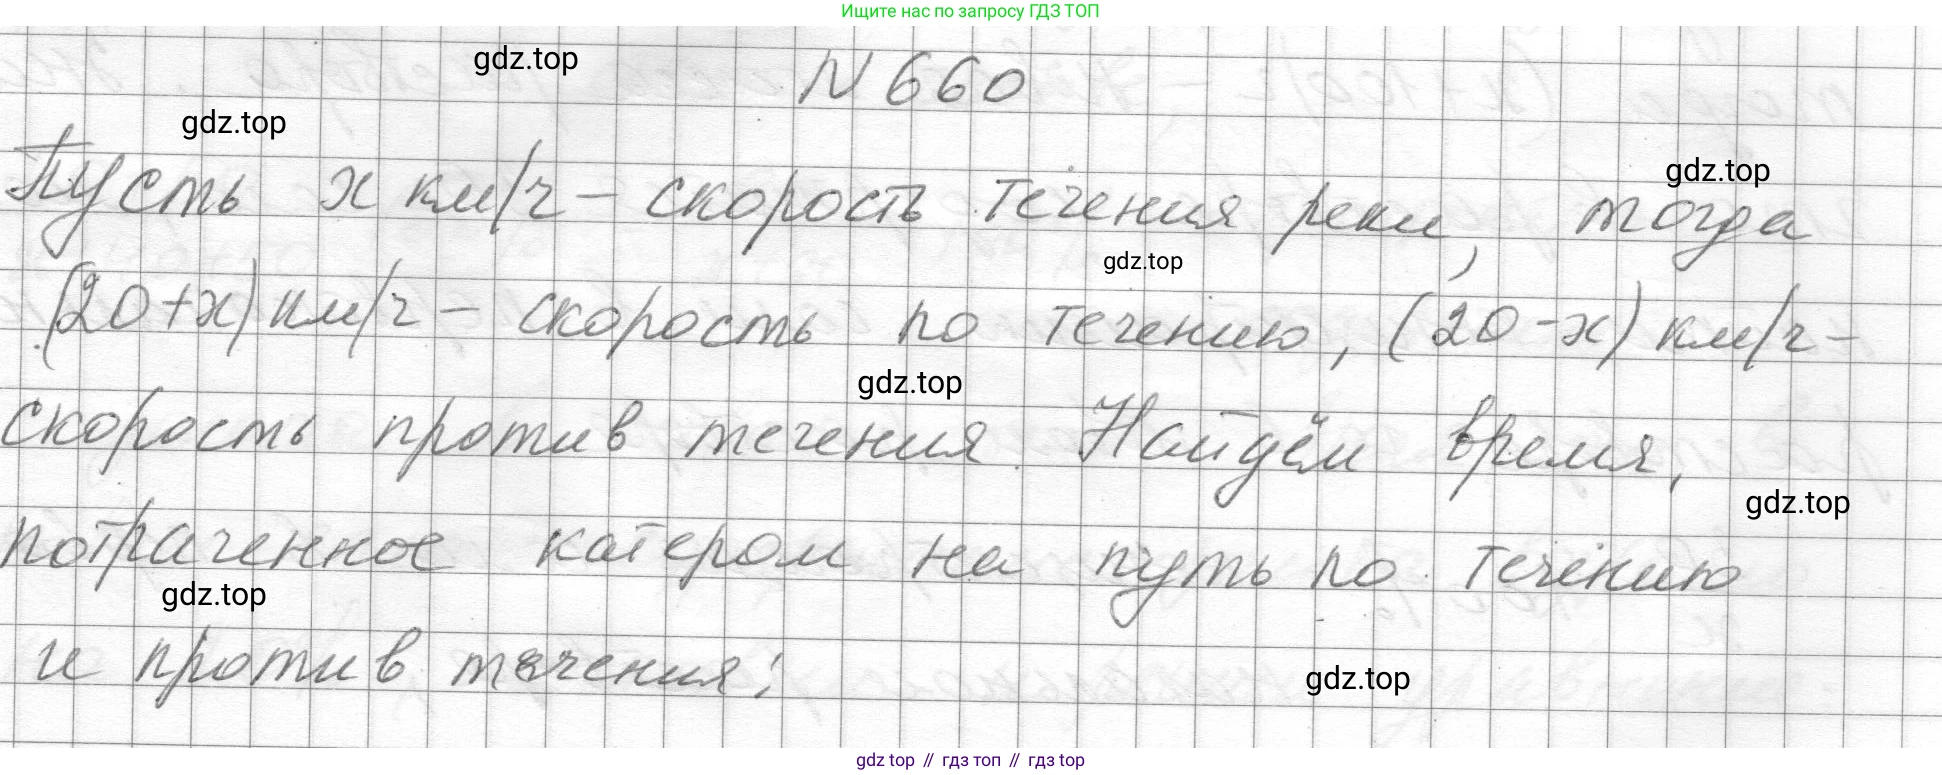 Ищите нас по запросу ГДЗ ТОП
gdz.top
N 660
gdz.top
gdz.top
Пусть x км/ч – скорость течения реки, тогда
gdz.top
(20+x) км/ч – скорость по течению, (20-x) км/ч –
gdz.top
скорость против течения. Найдём время,
gdz.top
потраченное катером на путь по течению
gdz.top
и против течения:
gdz.top
gdz top // гдз топ // гдз top